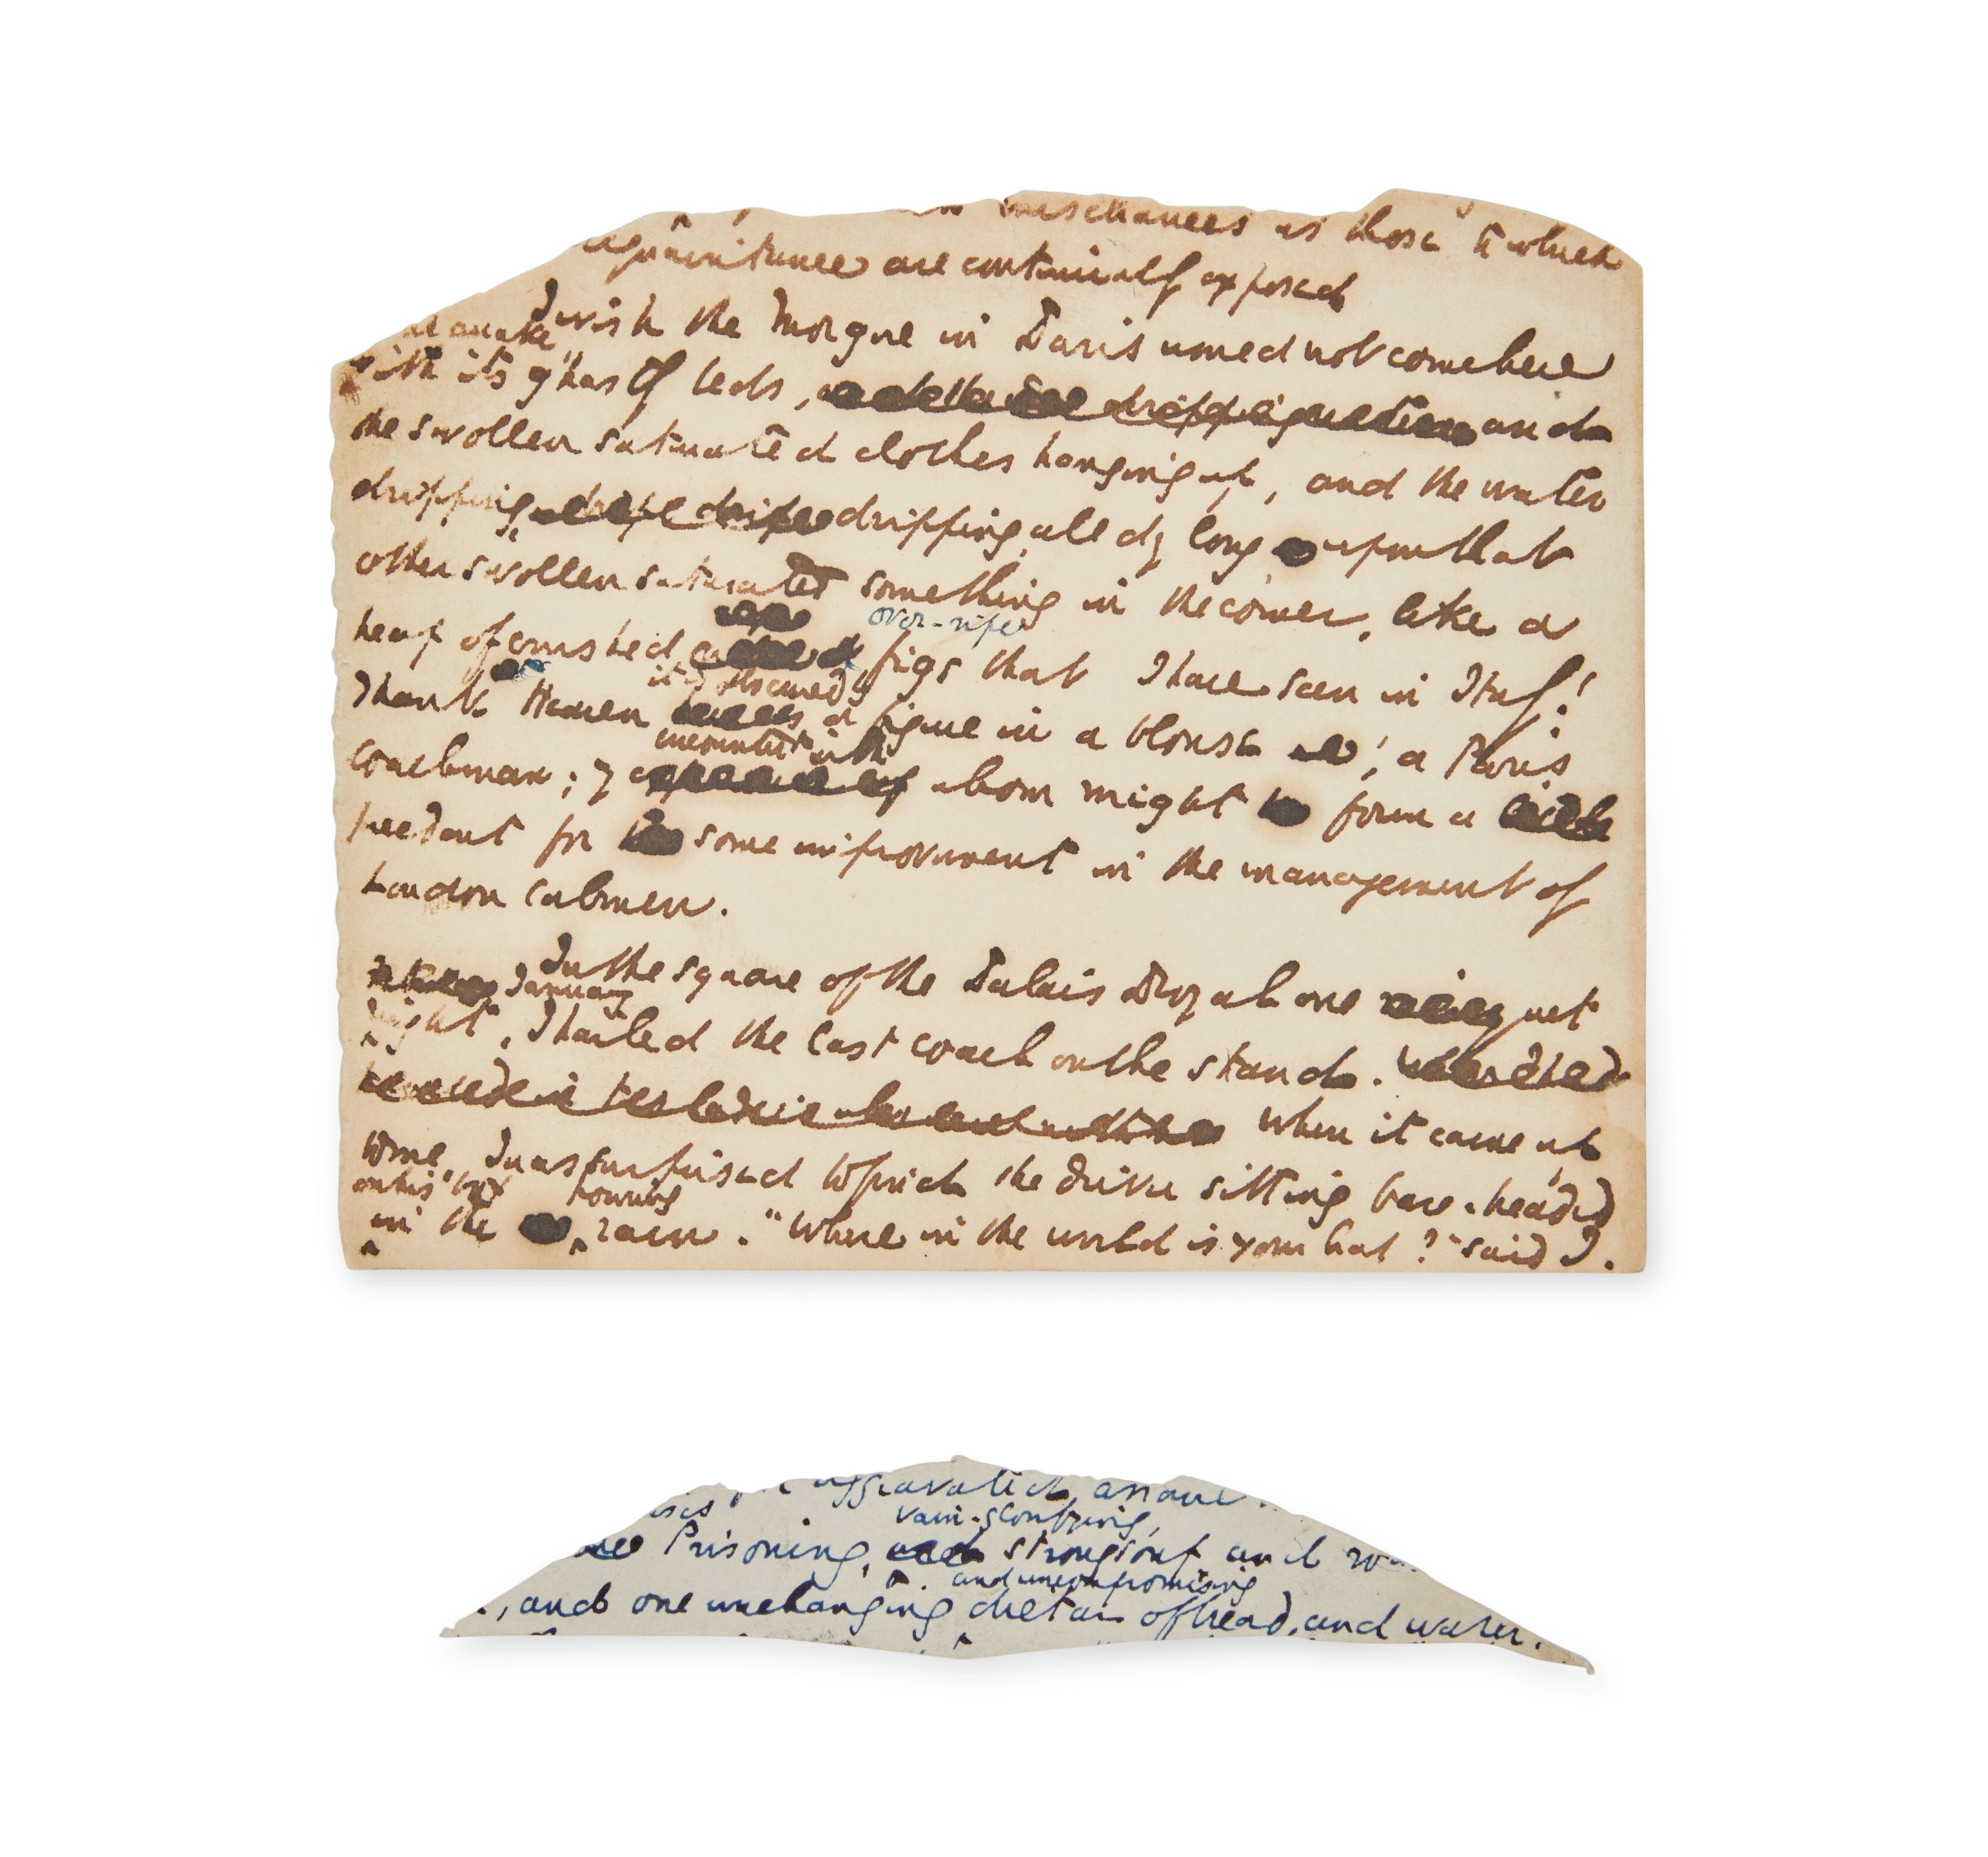 mischances as those to which
acquaintance are continually exposed
I wish the Morgue in Paris would not come here
awake
with its ghastly beds, and
the swollen saturated clothes hanging up, and the water
dripping, dripping all day long upon that
other swollen saturated something in the corner, like a
over-ripe
heap of crushed figs that I have seen in Italy!
it is obscured by
Thank Heaven a figure in a blouse, a Paris
encounter with
coachman; whom might form a
precedent for some improvement in the management of
London cabmen.
In the square of the Palais Royal one wet
January
night, I hailed the last coach on the stand.
When it came up
to me, I was surprised to find the driver sitting bare-headed
on his box pouring
in the rain. "Where in the world is your hat?" said I.
aggravated,
vain-glorying,
Prisoning, strong soup, and
and uncompromising
, and one unchanging dietary of bread, and water.